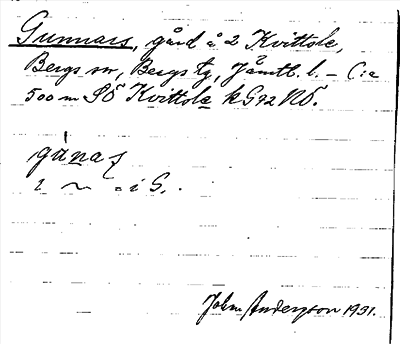 Gunnars, gård å 2 Kvittsle,
Bergs sn, Bergs tg, Jämtl. l. – C:a
500 m SÖ Kvittsle kS92NÖ.
gúnaʃ
i G.
John Anderson 1931.